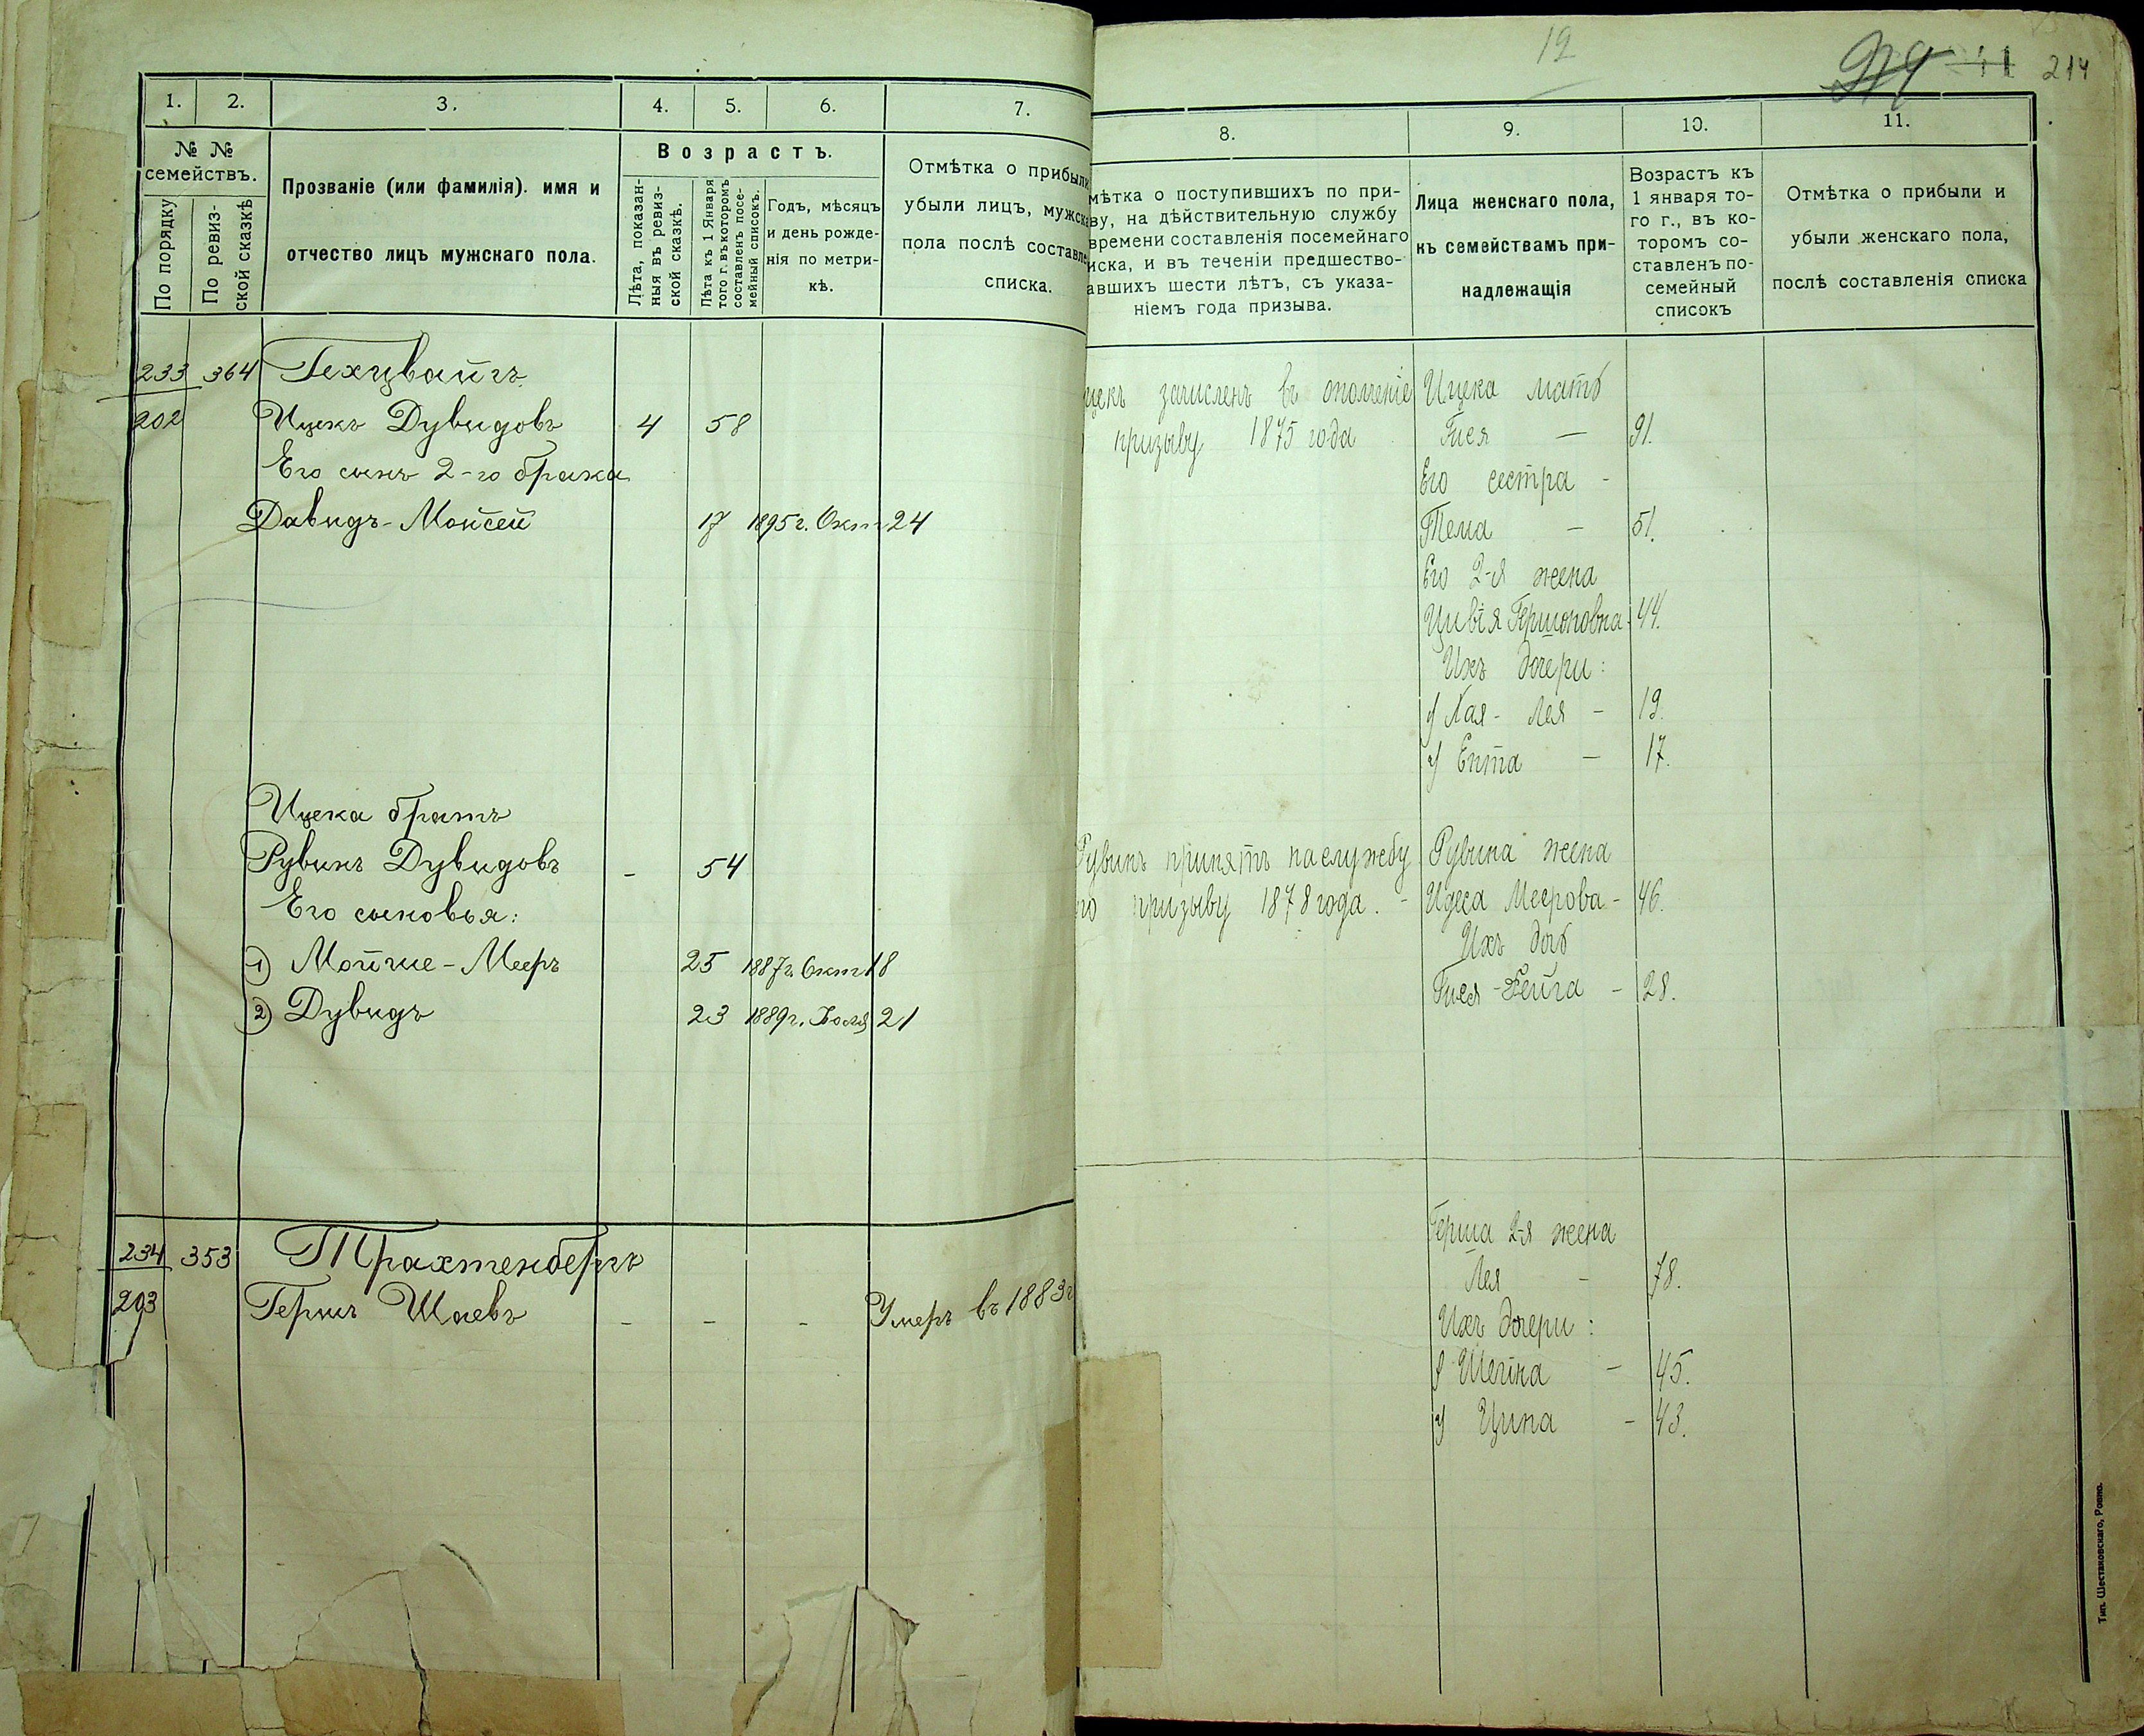 1.
2.
3.
4.
5.
6.
7.
№ №
семействъ.
По порядку
По ревиз-
ской сказкѣ
Прозваніе (или фамилія). имя и
отчество лицъ мужскаго пола.
Возрастъ.
Лѣта, показан-
ныя въ ревиз-
ской сказкѣ.
Лѣта къ 1 Января
того г. въ которомъ
составленъ посе-
мейный списокъ.
Годъ, мѣсяцъ
и день рожде-
нія по метри-
кѣ.
Отмѣтка о прибыли
убыли лицъ, мужска
пола послѣ составле
списка.
233 364 Гехцвайгъ
202 Ицекъ Дувидовъ 4 58
Его сынъ 2-го брака
Давидъ-Мойсей 17 1895г. Окт 24
Ицека братъ
Рувинъ Дувидовъ - 54
Его сыновья:
1) Мойше-Мееръ 25 1887г. Окт 18
2) Дувидъ 23 1889г. Іюля 21
234 353 Трахтенбергъ
203 Гершъ Шаевъ - - - Умеръ въ 1883г
12
11 214
8.
9.
10.
11.
мѣтка о поступившихъ по при-
ву, на дѣйствительную службу
времени составленія посемейнаго
иска, и въ теченіи предшество-
авшихъ шести лѣтъ, съ указа-
ніемъ года призыва.
Лица женскаго пола,
къ семействамъ при-
надлежащія
Возрастъ къ
1 января то-
го г., въ ко-
торомъ со-
ставленъ по-
семейный
списокъ
Отмѣтка о прибыли и
убыли женскаго пола,
послѣ составленія списка
цекъ зачисленъ въ ополченіе Ицека мать
призыву 1875 года Гися — 91.
Его сестра -
Тема — 51.
Его 2-я жена
Цивія Гершоновна - 44.
Ихъ дочери:
1) Хая - Лея - 19.
2) Ента — 17.
Рувинъ принятъ на службу Рувина жена
по призыву 1878 года. - Идеса Меерова - 46.
Ихъ дочь
Гися-Фейга - 28.
Герша 2-я жена
Лея - 78.
Ихъ дочери:
1) Шейна - 45.
2) Цина - 43.
Тип. Шестаковскаго, Ровно.